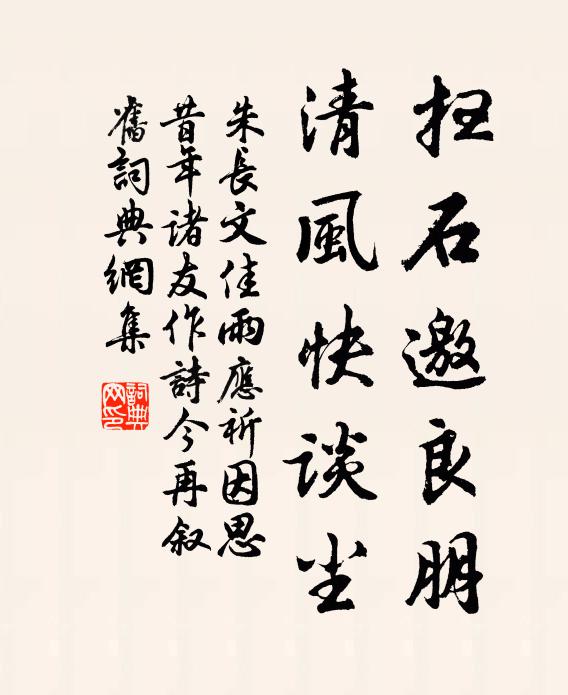 扫石邀良朋
清風快谈尘
朱長文佳雨應祈因思
昔年诸友作詩今再叙
舊詞典網集
詞典网印